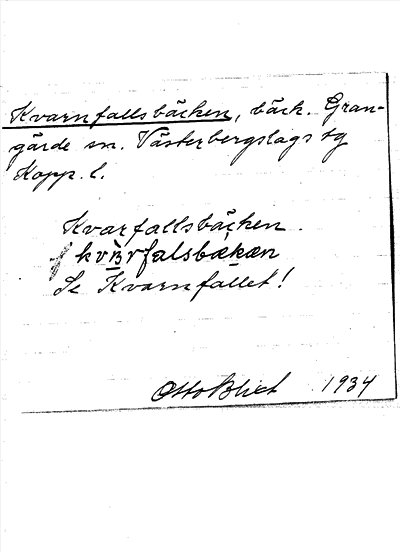 Kvarnfallsbäcken, bäck. Gran-
gärde sn. Västerbergslags tg
Kopp. l.
Kvarfallsbäcken.
Se Kvarnfallet!
Otto Blixt 1934